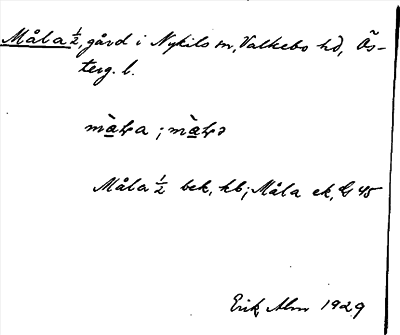 Måla ½, gård i Nykils sn, Valkebo hd, Ös-
terg. l.
Måla ½ bek, kb; Måla ek, GS 45
Erik Alm 1929